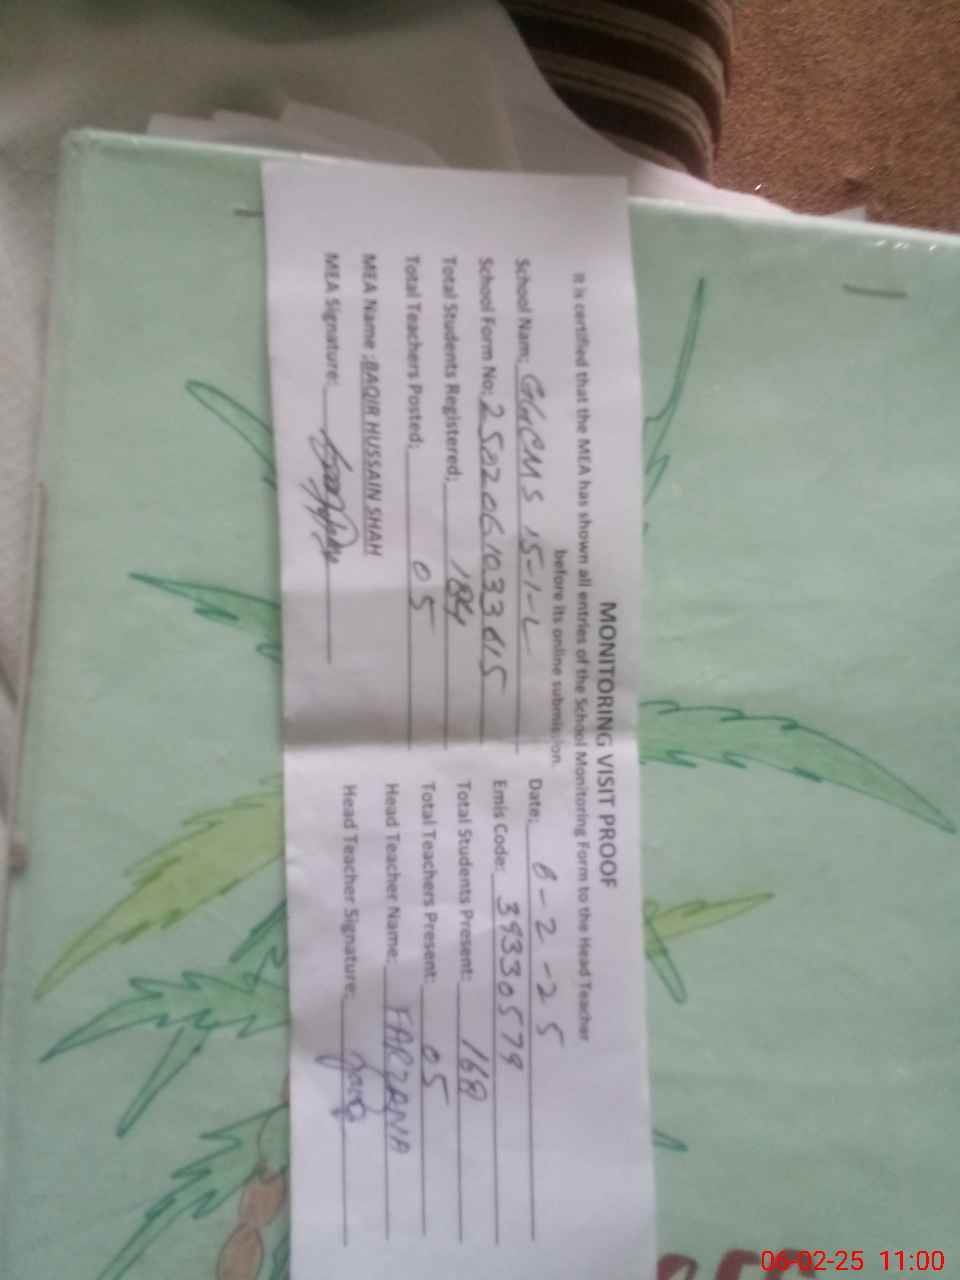 MONITORING VISIT PROOF
It is certified that the MEA has shown all entries of the School Monitoring Form to the Head Teacher
before its online submission.
School Nam: GGCMS 15-1-L Date: 6-2-25
School Form No: Emis Code: 39330579
Total Students Registered: 184 Total Students Present:
Total Teachers Posted: 05 Total Teachers Present: 05
MEA Name: BAQIR HUSSAIN SHAH Head Teacher Name: FARZANA
MEA Signature: Head Teacher Signature:
06-02-25 11:00